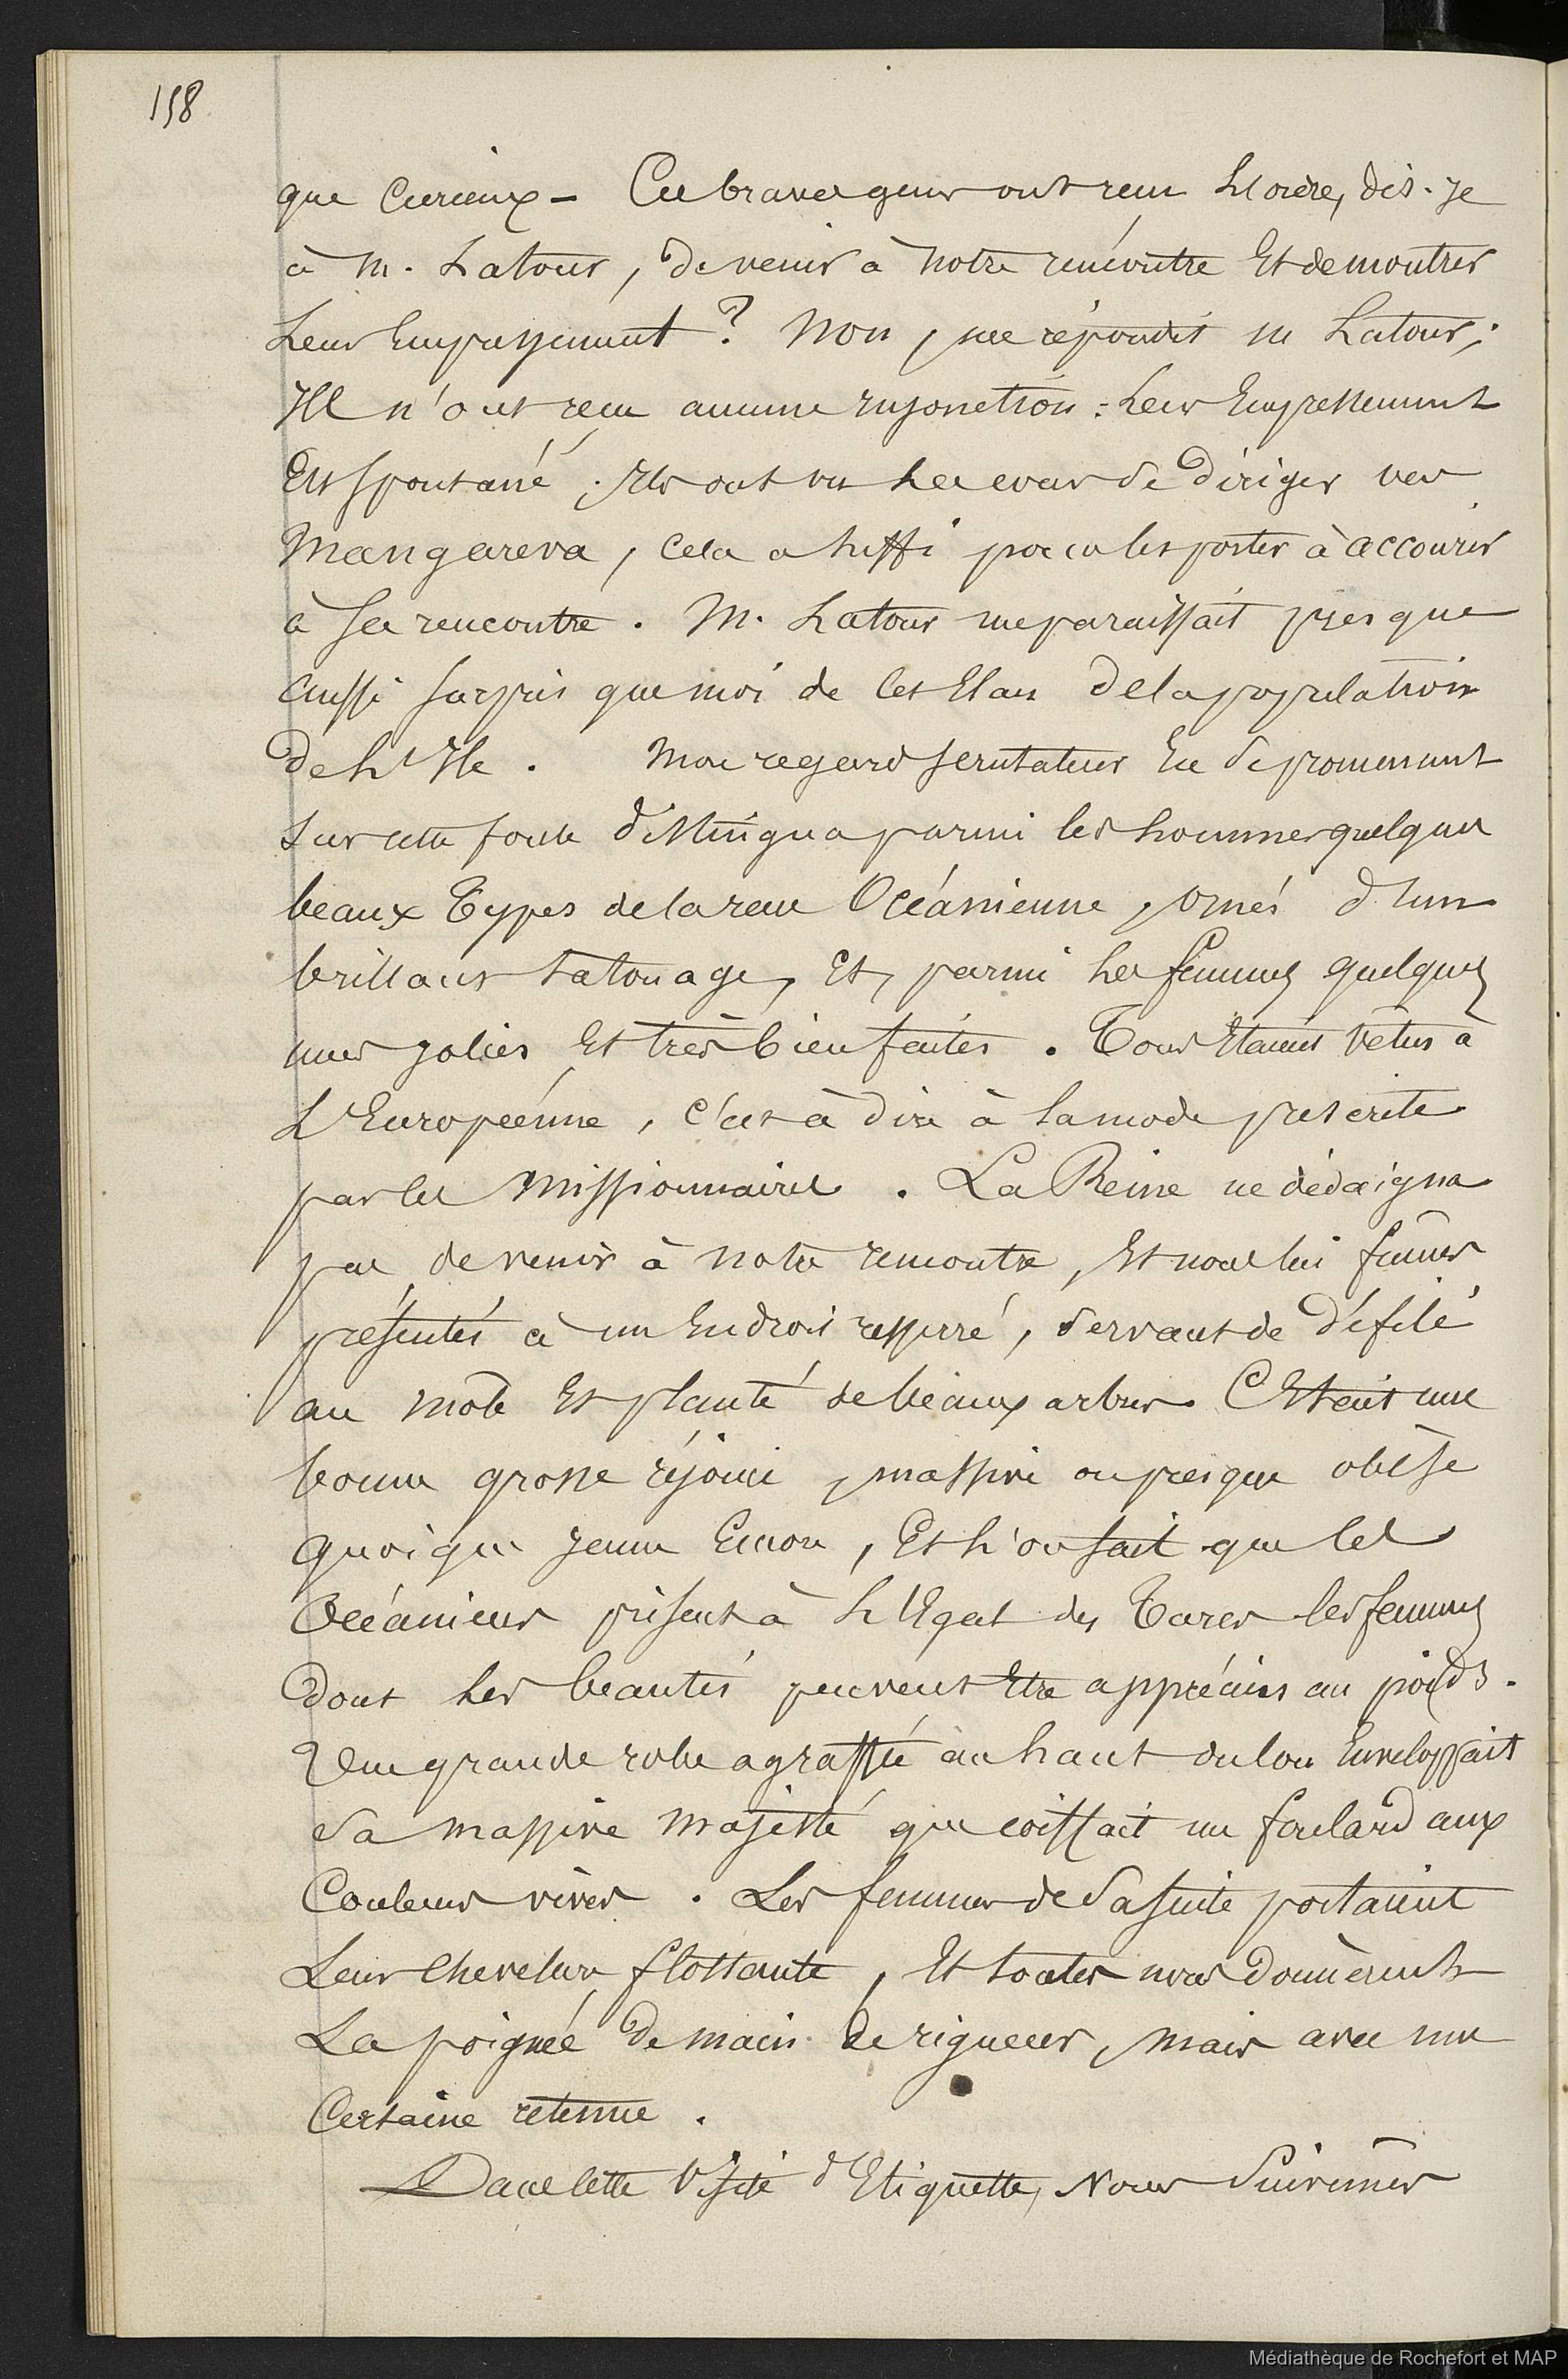 158
que Curieux - Ces braves gens ont reçu L'ordre, dis-je
à M. Latour, de venir à notre rencontre Et de montrer
Leur Empressement ? Non, me répondit M Latour;
Ils n'ont reçu aucune injonction : Leur Empressement
Est spontané. Ils ont vu Les se diriger vers
Mangareva, Cela a suffi pour les porter à accourir
à sa rencontre. M. Latour me paraissait presque
aussi surpris que moi de Cet Elan de la population
de L'Ile. Mon regard scrutateur En se promenant
sur cette foule distingua parmi les hommes quelques
beaux Types de la race Océanienne, ornés d'un
brillant tatouage, Et, parmi Les femmes quelques
unes jolies Et très bien faites. Tous Etaient vêtus à
L'Européenne, c'est à dire à la mode prescrite
par les Missionnaires. La Reine ne dédaigna
pas de venir à notre rencontre, Et nous lui fûmes
présentés à un Endroit resserré, servant de défilé
au môle Et planté de beaux arbres. C'Etait une
bonne grosse réjouie, massive ou presque obèse
quoique jeune Encore, Et L'on sait que les
Océaniens prisent à L'Egal des Turcs les femmes
dont Les beautés peuvent Etre appréciées au poids.
Une grande robe agraffée au haut du cou Enveloppait
Sa massive Majesté que coiffait un foulard aux
Couleurs vives. Les femmes de Sa suite portaient
Leur Chevelure flottante, Et toutes nous donnèrent
La poignée de main de rigueur, Mais avec une
Certaine retenue.
Dans cette Visite d'Etiquette, Nous Suivîmes
Médiathèque de Rochefort et MAP